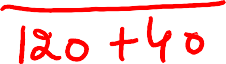 120 + 40